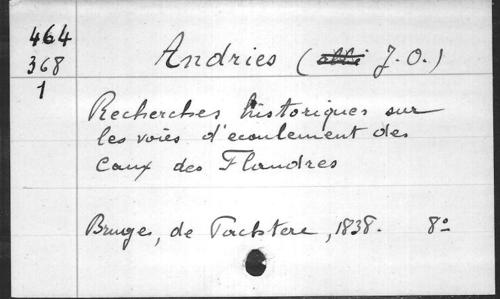 464
368
1
Andries (J. O.)
Recherches historiques sur
les voies d'ecoulement des
eaux des Flandres
Bruges, de Pachtere, 1838. 8º